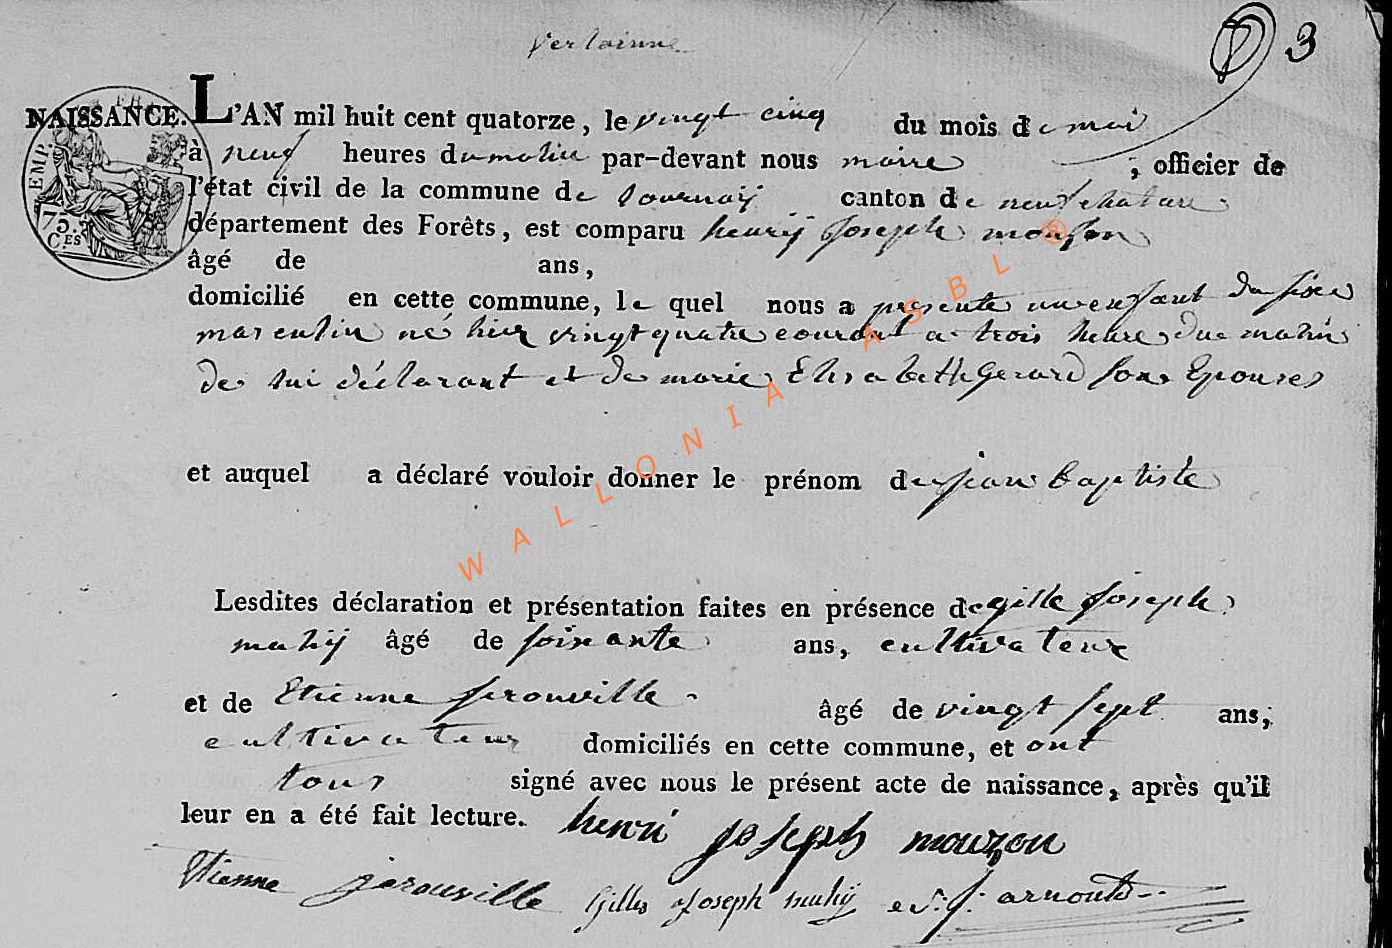 verlainne
3
NAISSANCE. L'AN mil huit cent quatorze, le vingt cinq du mois de mai
à neuf heures du matin par-devant nous maire , officier de
l'état civil de la commune de tournay canton de neufchateau
département des Forêts, est comparu henrÿ Joseph mouzon
âgé de ans,
domicilié en cette commune, le quel nous a presenté un enfant du sixe
masculin né hier vingt quatre courant a trois heure du matin
de lui déclarant et de marie Elisabeth Gerard son Epouse
et auquel a déclaré vouloir donner le prénom de jean baptiste
Lesdites déclaration et présentation faites en présence de gille Joseph
mahÿ âgé de soixante ans, cultivateur
et de Etienne jerouville âgé de vingt sept ans,
cultivateur domiciliés en cette commune, et ont
tous signé avec nous le présent acte de naissance, après qu'il
leur en a été fait lecture. henri joseph mouzon
Etienne jerouville Gilles Joseph mahÿ arnould
EMP.
75.
CES
WALLONIA ASBL ®